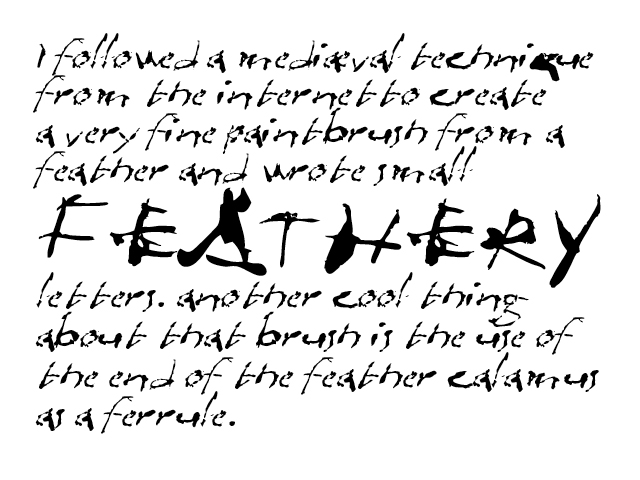 I followed a mediæval technique
from the internet to create
a very fine paintbrush from a
feather and wrote small
FEATHERY
letters. another cool thing
about that brush is the use of
the end of the feather calamus
as a ferrule.